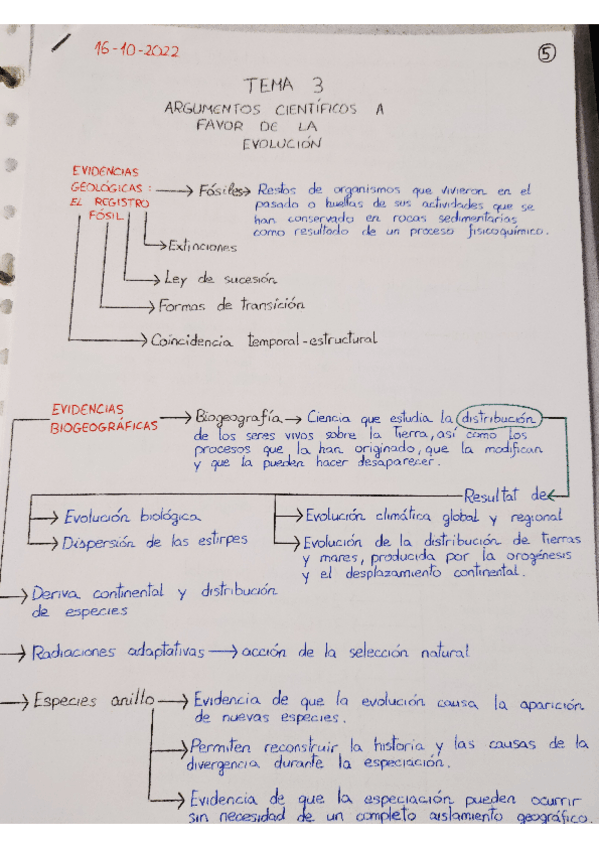 16-10-2022
5
TEMA 3
ARGUMENTOS CIENTÍFICOS A
FAVOR DE LA
EVOLUCIÓN
EVIDENCIAS
GEOLÓGICAS:
EL REGISTRO
FÓSIL
Fósiles → Restos de organismos que vivieron en el
pasado o huellas de sus actividades que se
han conservado en rocas sedimentarias
como resultado de un proceso fisicoquímico.
Extinciones
Ley de sucesión
Formas de transición
Coincidencia temporal-estructural
EVIDENCIAS
BIOGEOGRÁFICAS
Biogeografía → Ciencia que estudia la distribución
de los seres vivos sobre la Tierra, así como los
procesos que la han originado, que la modifican
y que la pueden hacer desaparecer.
Resultat de
Evolución biológica
Dispersión de las estirpes
Evolución climática global y regional
Evolución de la distribución de tierras
y mares, producida por la orogénesis
y el desplazamiento continental.
Deriva continental y distribución
de especies
Radiaciones adaptativas → acción de la selección natural
Especies anillo → Evidencia de que la evolución causa la aparición
de nuevas especies.
Permiten reconstruir la historia y las causas de la
divergencia durante la especiación.
Evidencia de que la especiación pueden ocurrir
sin necesidad de un completo aislamiento geográfico.